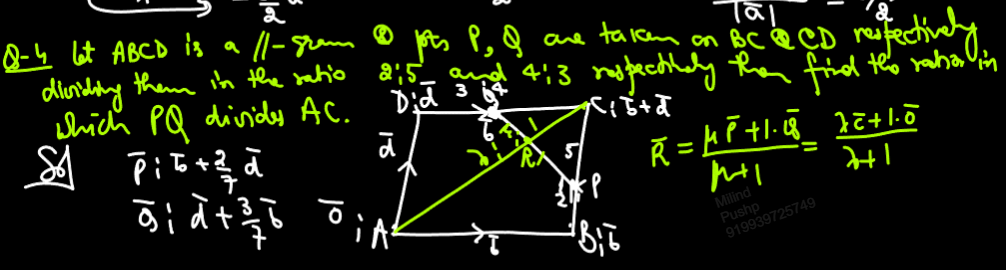 Q-4 let ABCD is a //-gram & pts P, Q are taken on BC & CD respectively
dividing them in the ratio 2:5 and 4:3 respectively then find the ratio in
which PQ divides AC.
Sol
p̄ ; b̄ + 2/7 d̄
q̄ ; d̄ + 3/7 b̄
D;d̄ 3 : 4 Q C; b̄+d̄
d̄ b̄ 5
λ : 1 R P 2
ō ; A b̄ B;b̄
R̄ = (μ P̄ + 1·Q̄)/(μ+1) = (λc̄ + 1·ō)/(λ+1)
Milind
Pushp
919939725749